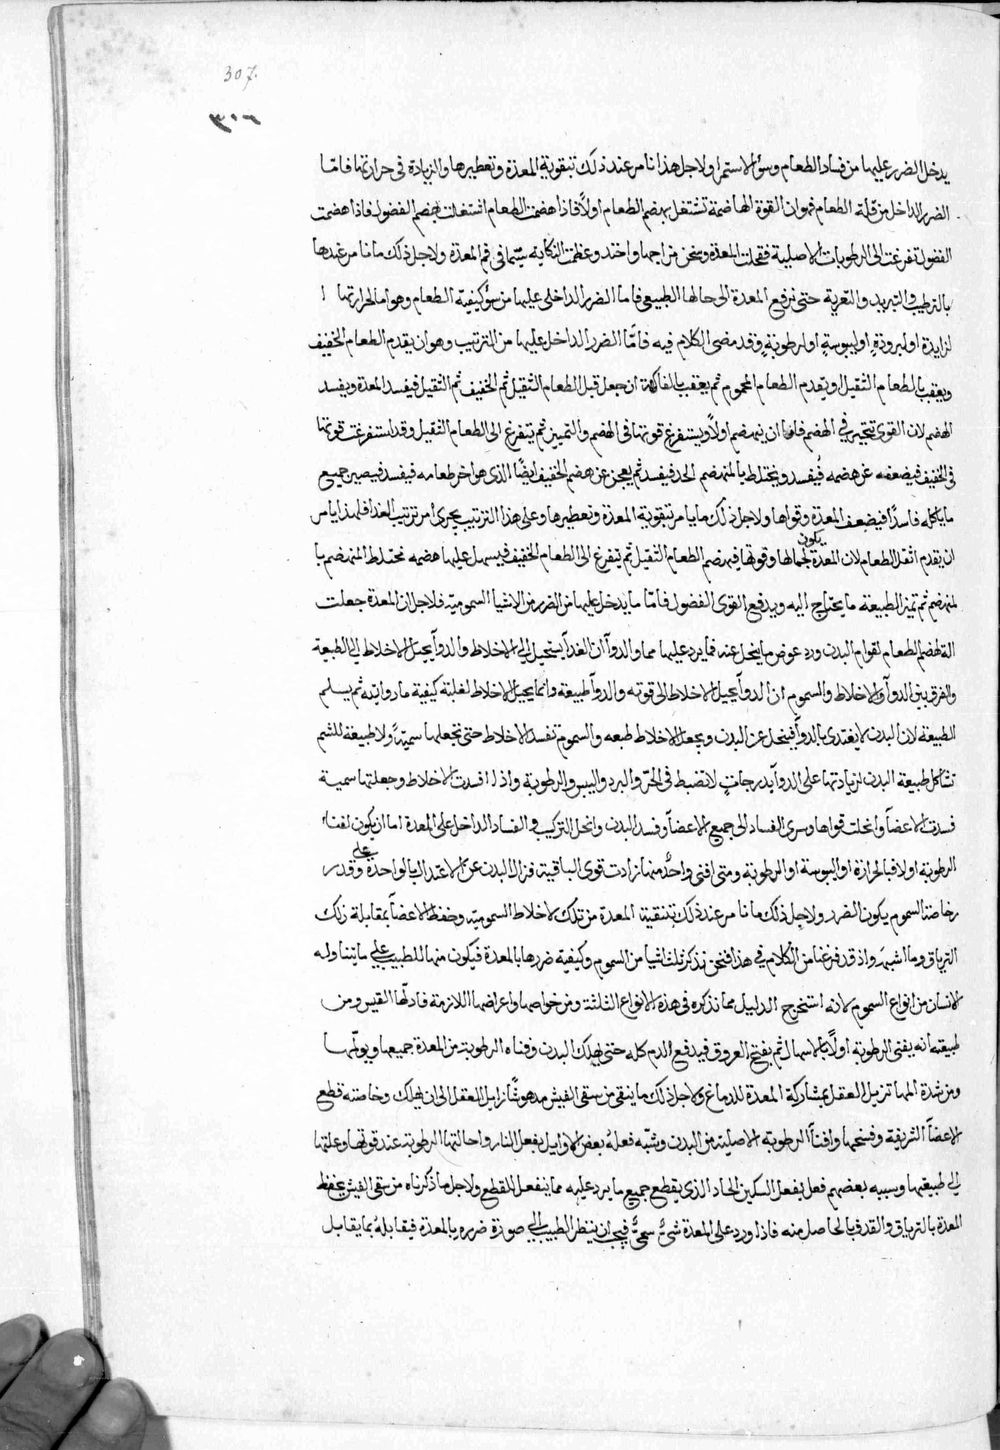 307.
٣٠٦
يدخل الضرر عليها من فساد الطعام وسؤ الاستمرا ولاجل هذا نامر عند ذلك بتقوية المعدة وتعطيرها والزيادة فى حرارتها فامّا
الضرر الداخل من قلة الطعام فهو ان القوة الهاضمة تشتغل بهضم الطعام اولاً فاذا هضمت الطعام اشتغلت بهضم الفضول فاذا هضمت
الفضول تفرغت الى الرطوبات الاصلية فقحلت المعدة وسخن مزاجها واحتد وعظمت النكاية سيّما فى فم المعدة ولاجل ذلك ما نامر عندها
بالترطيب والتبريد والتغرية حتى نرفع المعدة الى حالها الطبيعى فاما الضرر الداخل عليها من سؤ كيفية الطعام وهو اما لحرارتها ا
لزايدة او لبرودة او ليبوسة او لرطوبة وقد مضى الكلام فيه فامّا الضرر الداخل عليها من الترتيب وهو ان يقدم الطعام الخفيف
ويعقب بالطعام الثقيل او يقدم الطعام المحموم ثم يعقب بالفاكهة ان جعل قبل الطعام الثقيل ثم الخفيف ثم الثقيل فيفسد المعدة ويفسد
الهضم لان القوى تتحير فى الهضم فاما ان ينهضم اولاً ويستفرغ قوتها فى الهضم والتمييز ثم يتفرغ الى الطعام الثقيل وقد استفرغت قوتها
فى الخفيف فيضعف عن هضمه فيفسد ويختلط بالمنهضم الجد فيفسد ثم يعجز عن هضم الخفيف ايضًا الذى هو اخر طعامه فيفسد فيصير جميع
ما ياكله فاسدًا فيضعف المعدة وقواها ولاجل ذلك ما يامر بتقوية المعدة وتعطيرها وعلى هذا الترتيب يجرى امر ترتيب الغدا فلهذا يامر
ان يقدم اثقل الطعام لان المعدة يكون بجمالها وقوتها فيهضم الطعام الثقيل ثم يتفرغ الى الطعام الخفيف فيسهل عليها هضمه فختلط المنهضم با
لمنهضم ثم تميز الطبيعة ما يحتاج اليه ويدفع القوى الفضول فامّا ما يدخل عليها من الضرر من الاشيا السمومية فلاجل ان المعدة جعلت
الة لهضم الطعام لقوام البدن ورد عوض ما ينحل عنه فما يرد عليها مما والدوآ ان الغدآ يستحيل الى الاخلاط والدوآ يحيل الاخلاط الى الطبيعة
والفرق بين الدوآ والاخلاط والسموم ان الدوآ يحيل الاخلاط الى قوته والدوآ طبيعة وانما يحيل الاخلاط لغلبة كيفية ما دوايته ثم يسلم
الطبيعة لان البدن لا يغتدى بالدوآ فينحل عن البدن ويجعل الاخلاط طبعه والسموم تفسد الاخلاط حتى تجعلها سمية ولا طبيعة للسم
تشاكل طبيعة البدن لزيادتها على الدوآ بدرجات لا تضبط فى الحرّ والبرد واليبس والرطوبة واذا افسدت الاخلاط وجعلتها سمية
فسدت الاعضآ وانحلت قواها وسرى الفساد الى جميع الاعضآ وفسد البدن وانحل التركيب والفساد الداخل على المعدة اما ان يكون لفناء
الرطوبة اولا فبالحرارة او اليبوسة او الرطوبة ومتى افنى واحدٌ منها زادت قوى الباقية فزال البدن عن الاعتدال بالواحدة على وقدر
خاصة السموم يكون الضرر ولاجل ذلك ما نامر عند ذلك بتنقية المعدة من تلك الاخلاط السمومية وحفظ الاعضآ بمقابلة ذلك
الترياق وما اشبهه واذ قد فرغنا من الكلام فى هذا فنحن نذكر ثلث اشيا من السموم وكيفية ضررها بالمعدة فيكون منها للطبيب على ما يتناوله
الانسان من انواع السموم لانه استخرج الدليل مما نذكره فى هذه الانواع الثلثة ومن خواصها واعراضها اللازمة فاولها القيس ومن
طبيعته انه يفنى الرطوبة اولاً بالاسهال ثم يفتح العروق فيدفع الدم كله حتى يهلك البدن وفناه الرطوبة من المعدة جميعها ويولمها
ومن شدة المها تزيل العقل بمشاركة المعدة للدماغ ولاجل ذلك ما ينقى من سقى القيس مدهوشًا زايل العقل الى ان يهلك وخاصته قطع
الاعضآ الشريفة وفسخها وافنآ الرطوبة الاصلية من البدن وشبّه فعلهُ بعض الاوايل بفعل النار واحالتها الرطوبة عند قوتها وغلبتها
الى طبيعتها وسببه بعضهم فعل بفعل السكين الحاد الذى يقطع جميع ما يرد عليه مما ينفعل للقطع ولاجل ما ذكرناه من سقى القيس يحفظ
المعدة بالترياق والقدف بالحاصل منه فاذا ورد على المعدة شىٌ سمىٌّ فيجب ان ينظر الطبيب الى صورة ضرره بالمعدة فيقابلهُ بما يقابل